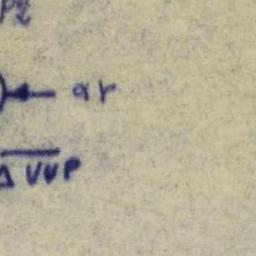 P2
ar
Δ VVP